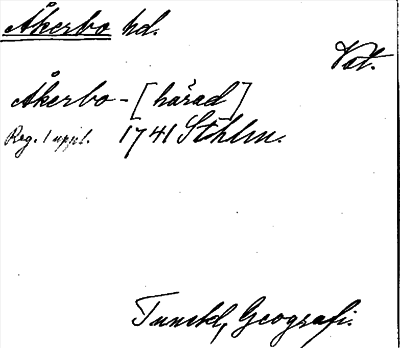 Åkerbo hd.
Vstr.
Åkerbo - [härad]
Reg. 1 uppl. 1741 Sthlm.
Tuneld, Geografi.